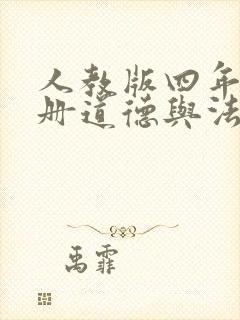 人教版四年
册道德與法
禹霏